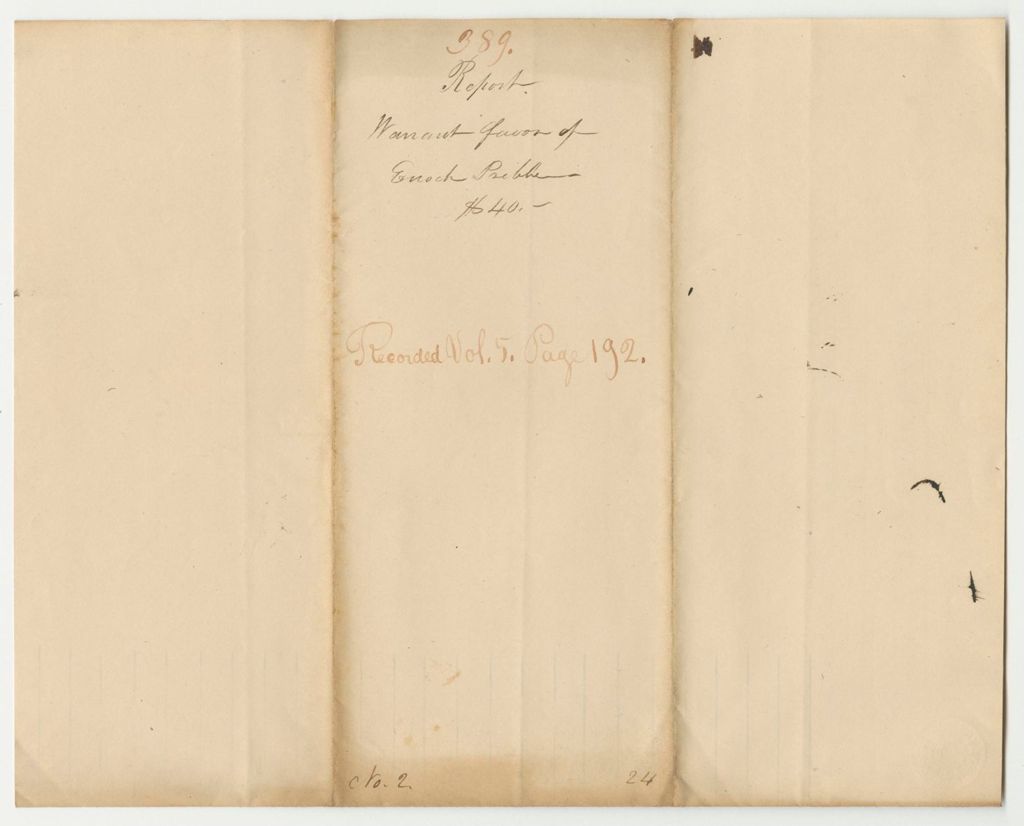 389.
Report.
Warrant favor of
Enoch Pribble
$40.—
Recorded Vol. 5. Page 192.
No. 2. 24